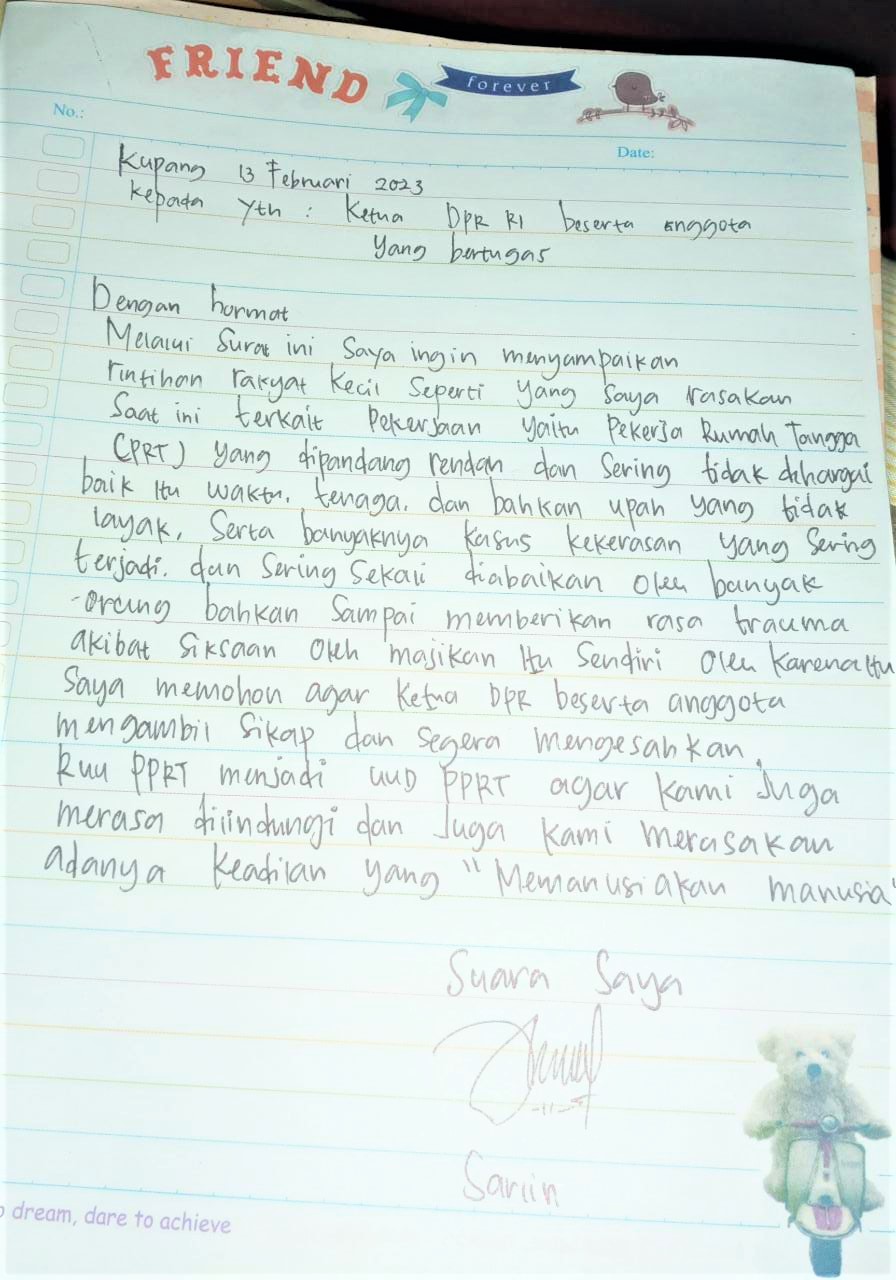 FRIEND
forever
No.:
Date:
Kupang 13 Februari 2023
kepada Yth : Ketua DPR RI beserta anggota
yang bertugas
Dengan hormat
Melalui Surat ini Saya ingin menyampaikan
rintihan rakyat kecil Seperti yang Saya rasakan
Saat ini terkait Pekerjaan yaitu Pekerja Rumah Tangga
(PRT) yang dipandang rendah dan Sering tidak dihargai
baik itu waktu, tenaga. dan bahkan upah yang tidak
layak, Serta banyaknya kasus kekerasan yang Sering
terjadi. dan Sering Sekali diabaikan oleh banyak
-orang bahkan Sampai memberikan rasa trauma
akibat Siksaan oleh majikan itu Sendiri oleh karena itu
Saya memohon agar Ketua DPR beserta anggota
mengambil Sikap dan Segera mengesahkan
Ruu PPRT menjadi UUD PPRT agar kami Juga
merasa dilindungi dan Juga kami merasakan
adanya keadilan yang "Memanusiakan manusia"
Suara Saya
Sariin
dream, dare to achieve